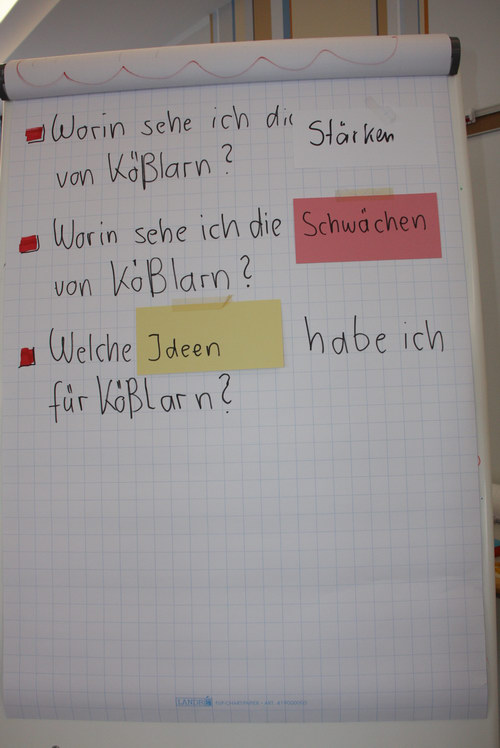 Worin sehe ich die Stärken
von Kößlarn?
Worin sehe ich die Schwächen
von Kößlarn?
Welche Ideen habe ich
für Kößlarn?
LANDRÉ